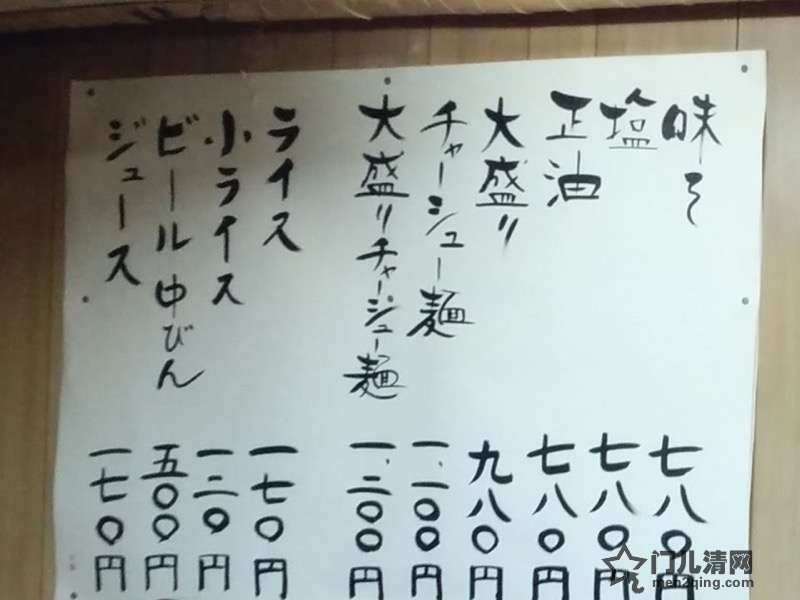 味そ 七八〇円
塩 七八〇円
正油 七八〇円
大盛り 九八〇円
チャーシュー麺 一、一〇〇円
大盛りチャーシュー麺 一、二〇〇円
ライス 一七〇円
小ライス 一二〇円
ビール中びん 五〇〇円
ジュース 一七〇円
门儿清网
men2qing.com